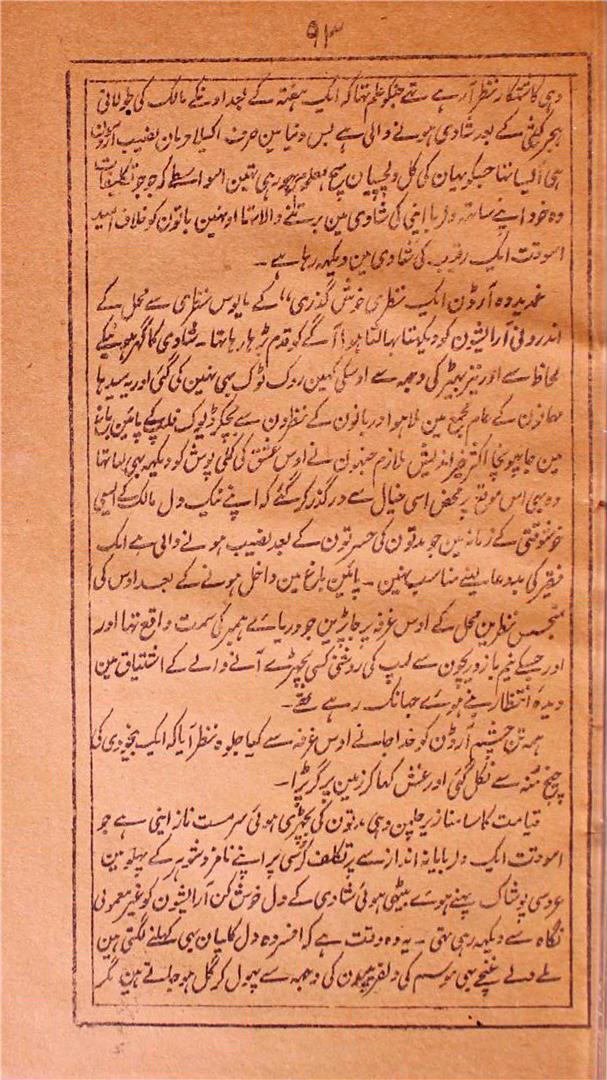 ۹۳
وہی کاشتکار نظر آرہے تھے جنکو علم تھا کہ ایک ہفتہ کے بعد اونکے مالک کی طولانی
ہجر کے بعد شادی ہونے والی ہے بس دنیا مین صرف اکیلا حرمان نصیب آرڈن
ہی ایسا تھا جسکو یہان کی کل دلچسپیان ہیچ معلوم ہو رہی تھین اسواسطے کہ جو جو تکلیفات
وہ خود اپنے ساتھ دلربا اینی کی شادی مین برتنے والا تھا اونہین باتون کو خلاف امید
اسوقت ایک رقیب کی شادی مین دیکھ رہا ہے ۔
غمدیدہ آرڈن ایک نظری خوش گذری،، کے مایوس نظری سے محل کے
اندرونی آرایشون کو دیکھتا بھالتا ہوا آگے کو قدم بڑھا رہا تھا ۔ شادی کا گھر ہونیکے
لحاظ سے اور نیز بھیڑ کی وجہ سے اوسکی کہین روک ٹوک بھی نہین کی گئی اور یہ سیدھا
مہمانون کے عام مجمع مین ملا ہوا دربانون کے نظرون سے بچکر ڈیوک فلپ کے پائین باغ
مین جا پہونچا اکثر خیراندیش ملازم جنہون نے اوس عشق کی کملی پوش کو دیکھ بھی لیا تھا
وہ بھی اس موقع پر محض اسی خیال سے درگذر کر گئے کہ اپنے نیک دل مالک کے ایسی
خوشوقتی کے زمانہ مین جو مدتون کی حسرتون کے بعد نصیب ہونے والی ہے ایک
فقیر کی بددعا لینے مناسب نہین ۔ پائین باغ مین داخل ہونے کے بعد اوس کی
متجسس نظرین محل کے اوس غرفہ پر جا پڑین جو دریائے ہمبر کی سمت واقع تھا اور
اور جسکے نیم باز دریچون سے لمپ کی روشنی کسی بچھڑے آنے والے کے اشتیاق مین
دیدہ انتظار بنے ہوئے جھانک رہے تھے ۔
ہمہ تن چشم آرڈن کو خدا جانے اوس غرفہ سے کیا جلوہ نظر آیا کہ ایک بیخودی کی
چیخ منہ سے نکل گئی اور غش کھا کر زمین پر گر پڑا ۔
قیامت کا سامنا زیر چلپن وہی مدتون کی بچھڑی ہوئی سرمست ناز اینی ہے جو
اسوقت ایک دلربایانہ انداز سے پرتکلف کرسی پر اپنے نامزد شوہر کے پہلو مین
عروسی پوشاک پہنے ہوئے بیٹھی ہوئی شادی کے دل خوش کن آرایشون کو غیر معمولی
نگاہ سے دیکھ رہی تھی ۔ یہ وہ وقت ہے کہ افسردہ دل کلیان بھی کھلنے لگتی ہین
ملے دلے غنچے بھی موسم کی دلفریبیون کی وجہ سے پھول کر گل ہو جاتے ہین مگر